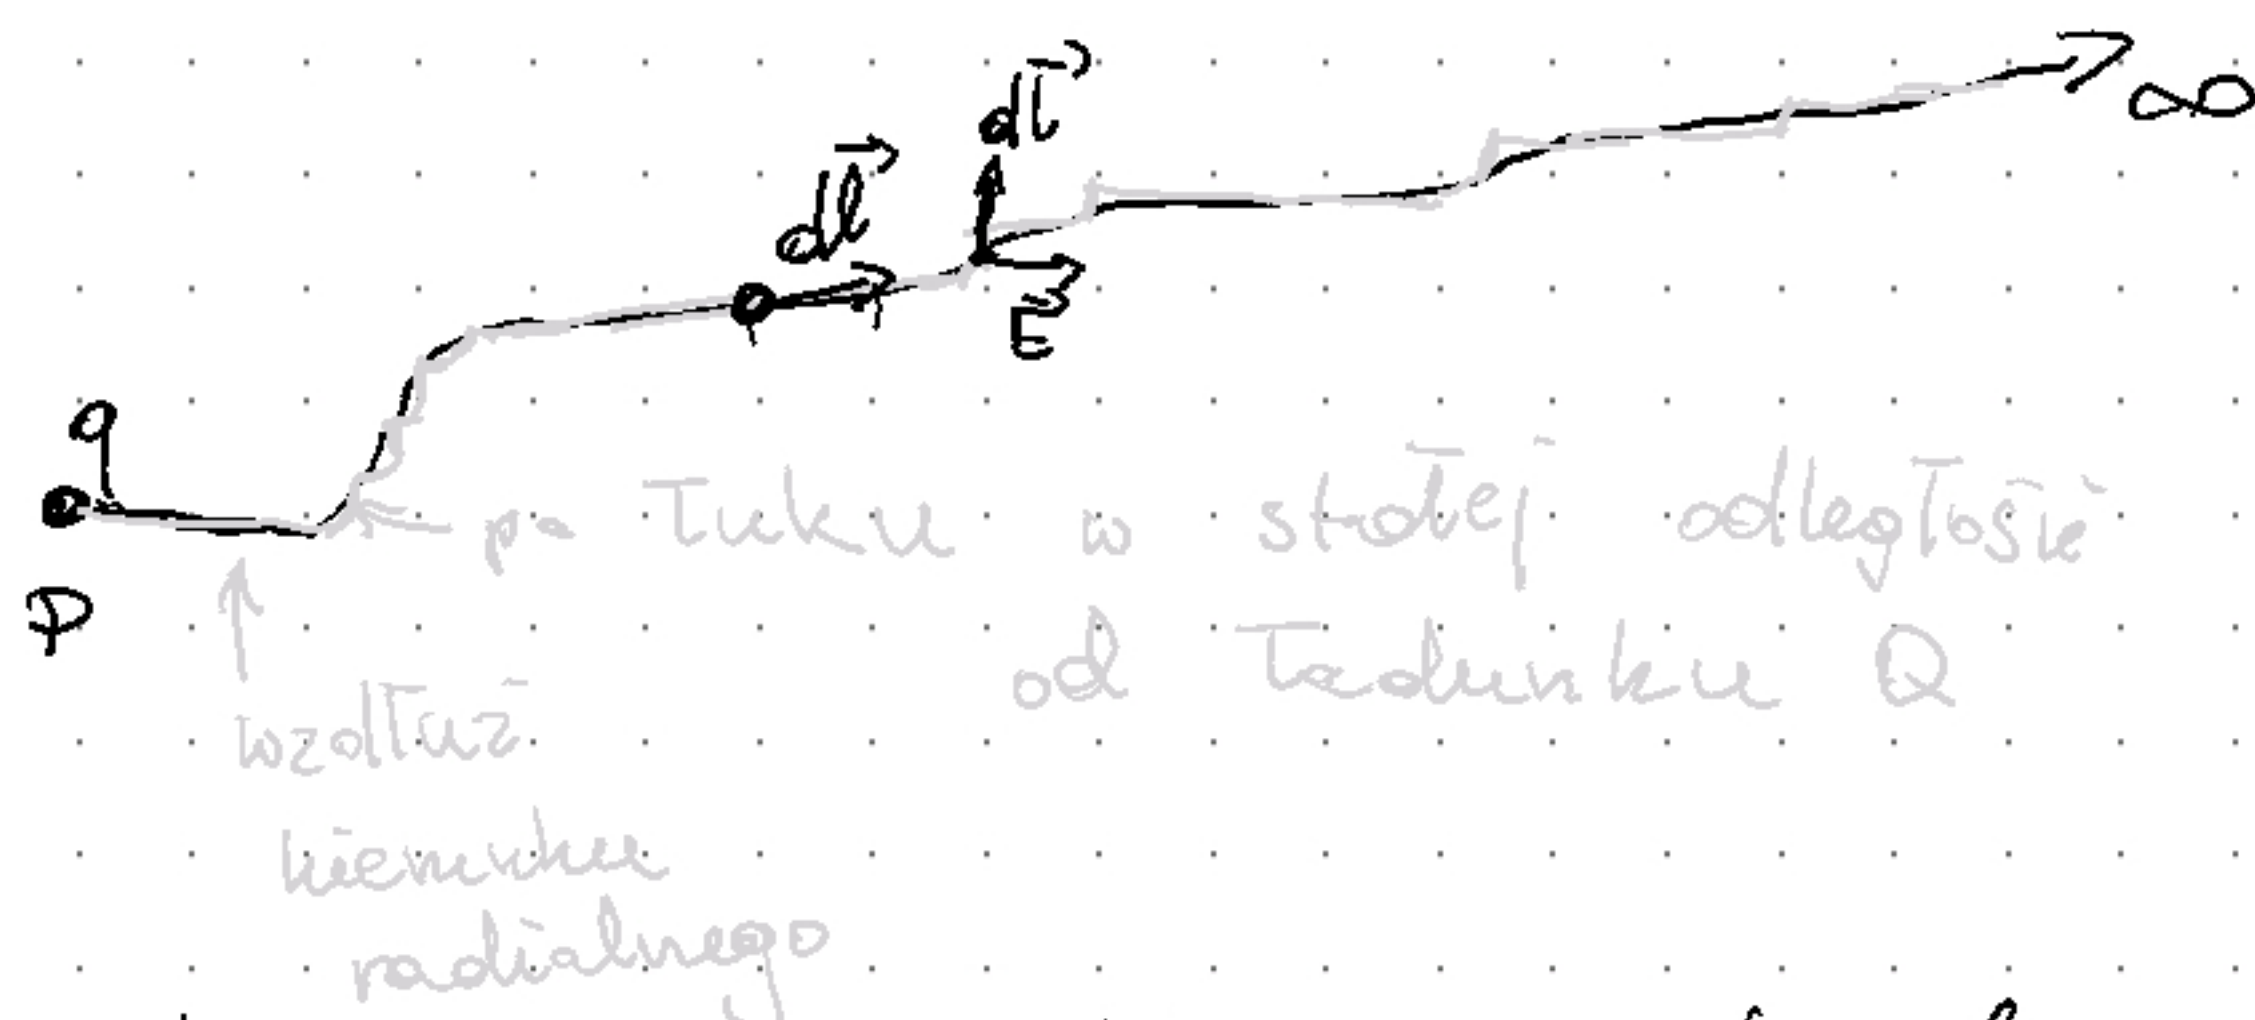 dl
∞
dl
E
q
po łuku w stałej odległości
P
od ładunku Q
wzdłuż
kierunku
radialnego